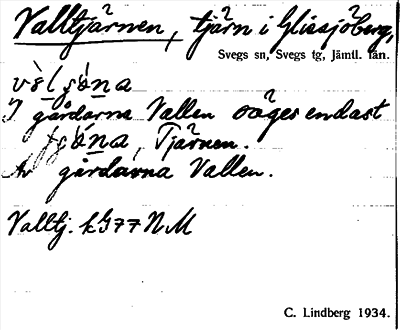 Valltjärnen, tjärn i Glissjöberg,
Svegs sn, Svegs tg, Jämtl. län.
I gårdarna Vallen säges endast
Tjärnen.
Av gårdarna Vallen.
Valltj. k G77 NM
C. Lindberg 1934.